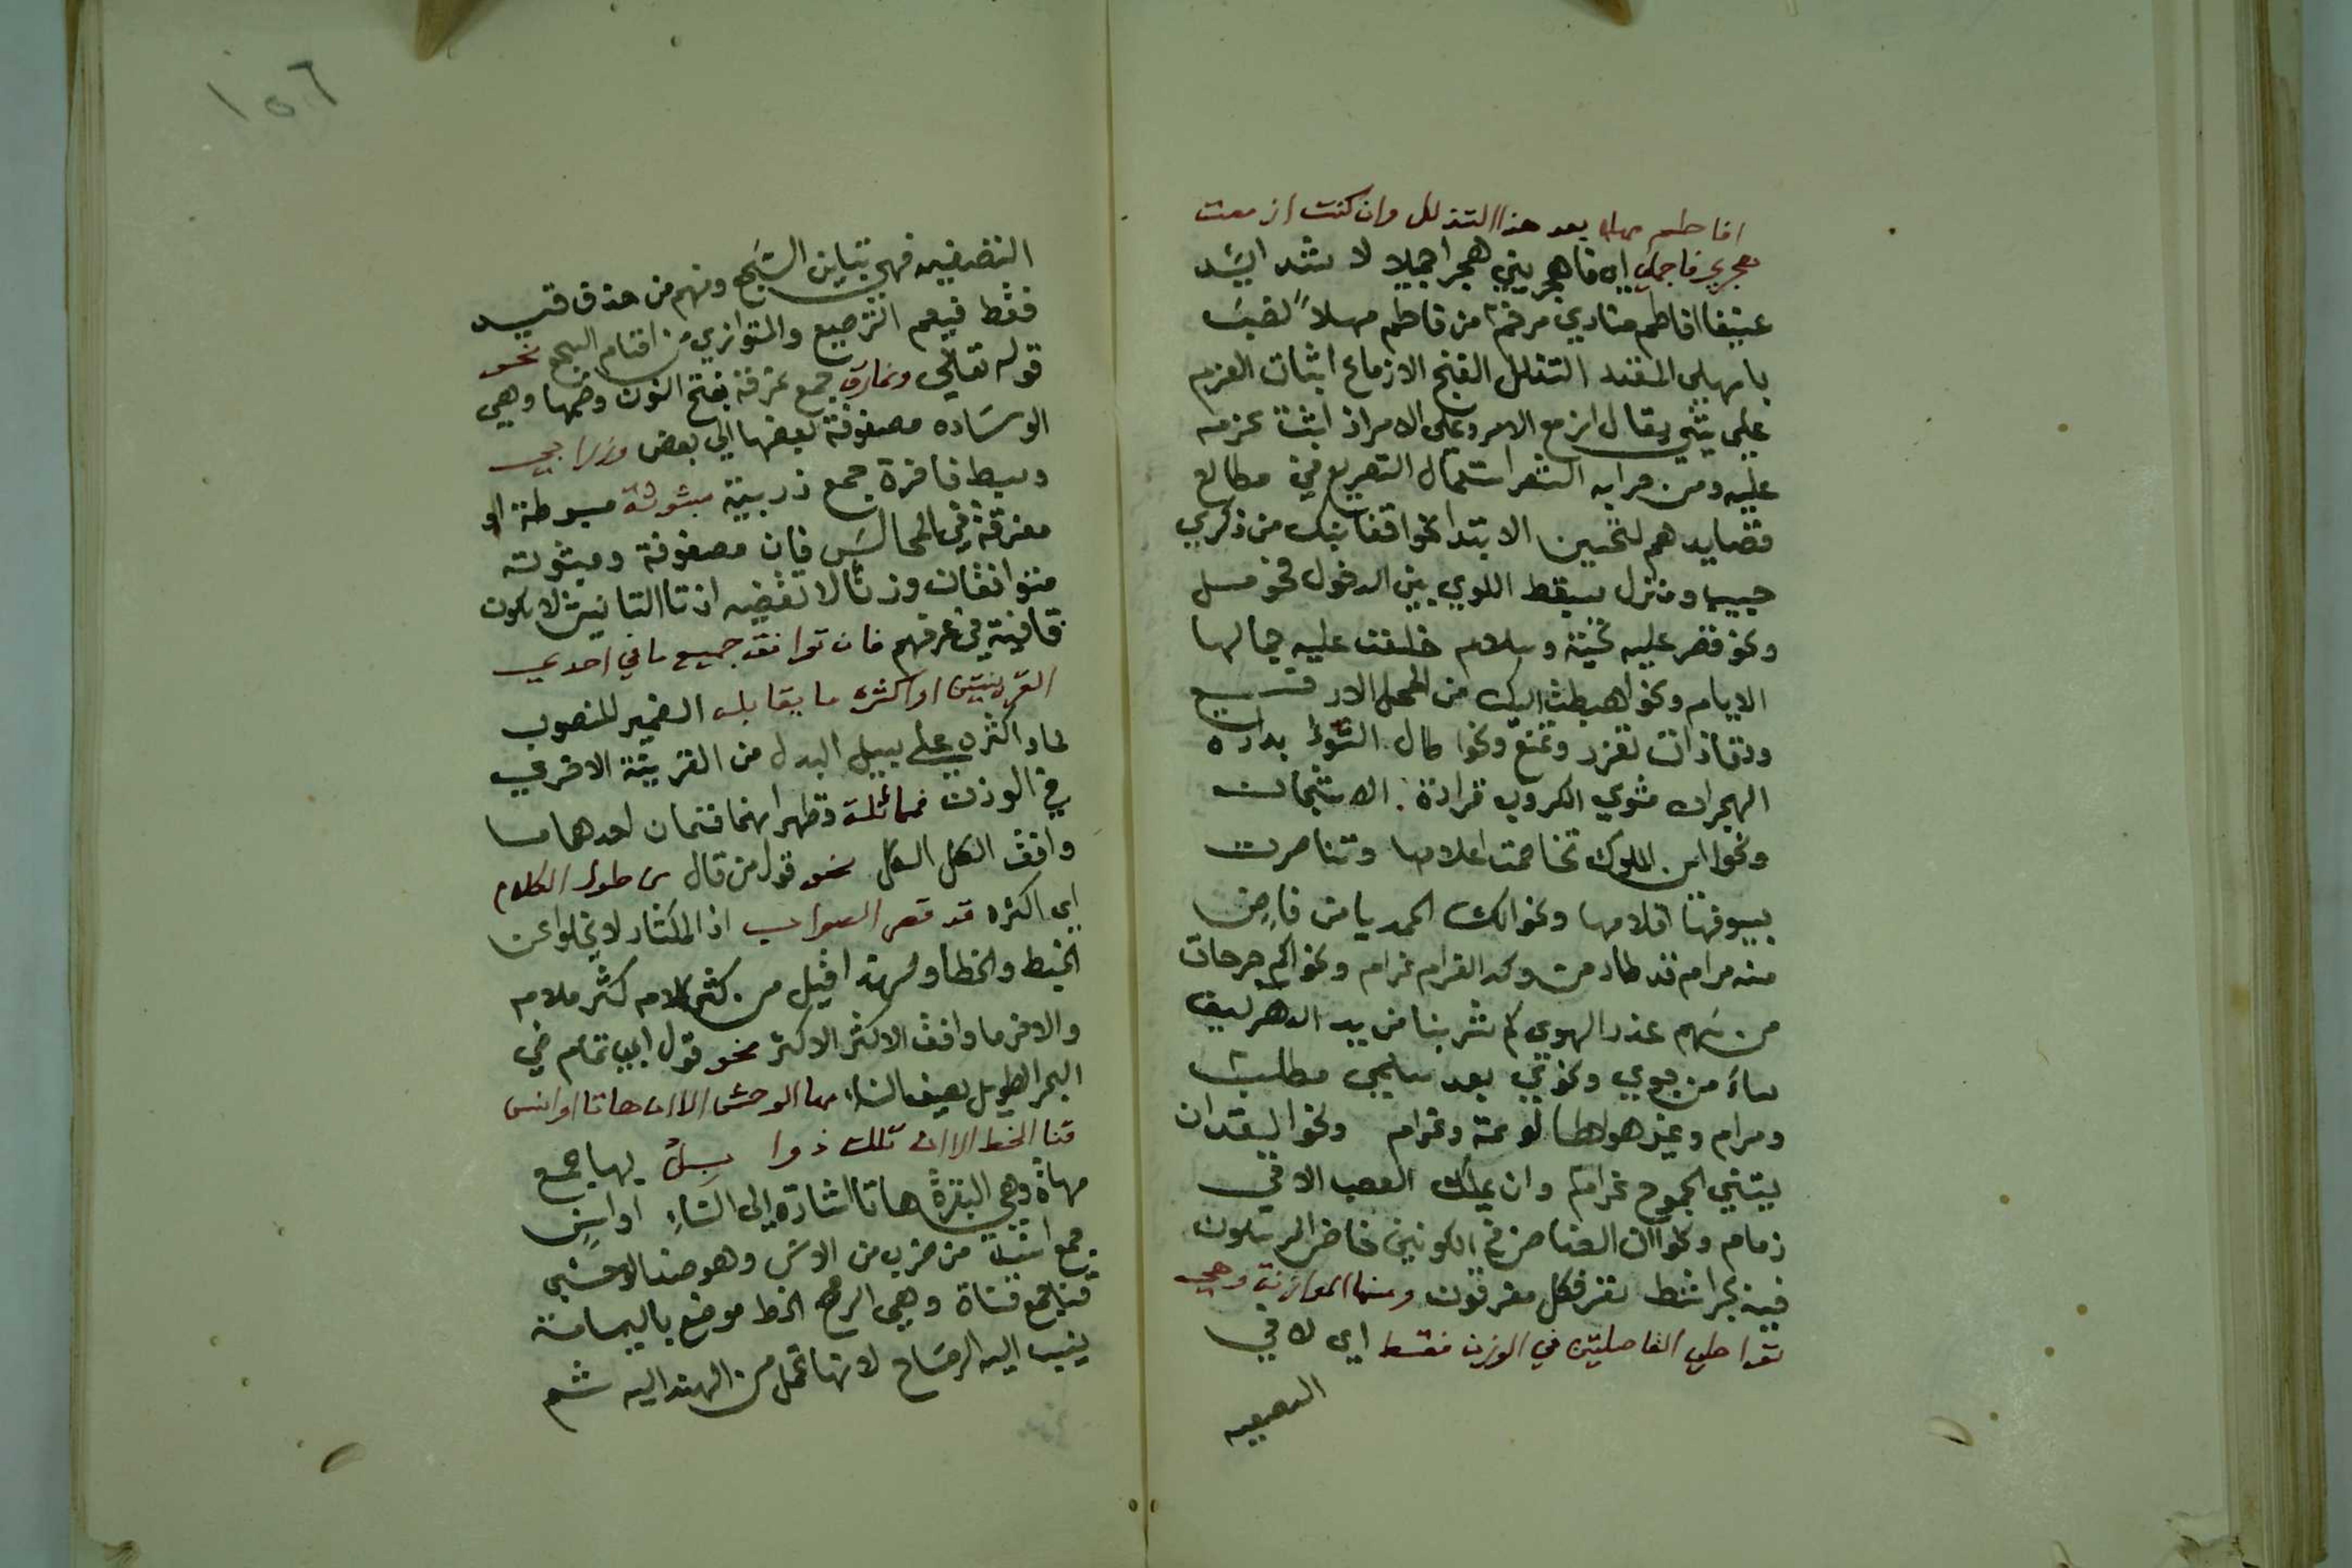 افاطم مهلا بعد هذا التذلل وان كنت ازمعت
هجري فاجملي اي فاهجريني هجرا جميلا لا شد ايشد
عنيفا افاطم منادي مرخم من فاطم مهلاً نصب
بامهلي المقدر التدلل الغنج الازماع اثبات العزم
علي شي يقال ازمع الامر وعلى الامر اذ اثبت عزمه
عليه ومن هذا به الشعر استعمال التصريع في مطالع
قصايدهم لتحسين الابتدا نحو اقفا نبك من ذكري
حبيب ومنزل بسقط اللوي بين الدخول فحومل
ونحو قصر عليه تحية وسلام خلعت عليه جمالها
الايام ونحو اهبطت اليك من المحل الارفع
ورقاء ذات تعزز وتمنع ونحو اطال
الهجران مثوي الكروب قرارة الاشجان
ونحو اين الملوك تخاصمت اعلامها وتناصرت
بسيوفها اقلامها ونحو الك الحمد يا من
منه مرام قد طار من وكد الغرام غرام ونحو اكم جرحات
من سهم عذر الهوي كم شربنا من يد الدهر ليف
ساء من جوي ونحو بعد سلمي مطلب
ومرام وغير هواها لوعة وغرام ونحو
الجموح غرام وان يملك الصعب الابي
زمام ونحو ان العناصر في الكونين
فيه بحر اشط تغرفكل مغرفون ومنها الموازنة وهي
تواطي الفاصلتين في الوزن فقط اي لا في
التقفيه
١٥٦
التقفيه فهي تباين السجع ومنهم من حذف قيد
فقط فيعم الترصيع والمتوازي من اقسام السجع نحو
قوله تعالي ونمارق جمع نمرقة بفتح النون وضمها وهي
الوساده مصفوفة بعضها الي بعض وزرابي
وبسط فاخرة جمع زربية مبثوثة مبسوطة او
مفرقة في المجالس فان مصفوفة ومبثوثه
متوافقان وزنا لا تقفيه اذ تا التانيث لا يكون
قافية في عرفهم فان توافق جميع ما في احدي
القرينتين او اكثره ما يقابله الضمير المنصوب
لما و اكثره علي سبيل البدل من القرينة الاخري
في الوزن فمماثلة وظهر انها قسمان احدهما ما
وافق الكل الكل نحو قول من قال من طول الكلام
اي اكثره قد قصر الصواب اذ المكثار لا يخلو عن
الخبط والخطا ولهذا قيل من كثر كلامه كثر ملامه
والاخر ما وافق الاكثر الاكثر نحو قول ابي تمام في
البحر الطويل يصف النساء مها الوحش الا ان هاتا اوانس
قنا الخط الا ان تلك ذوابل مها جمع
مهاة وهي البقرة هاتا اشارة الى النساء اوانس
جمع انسة من ضرب من الانس وهو ضد الوحشي
قنا جمع قناة وهي الرمح الخط موضع باليمامة
ينسب اليه الرماح لانها تحمل من الهند اليه ثم